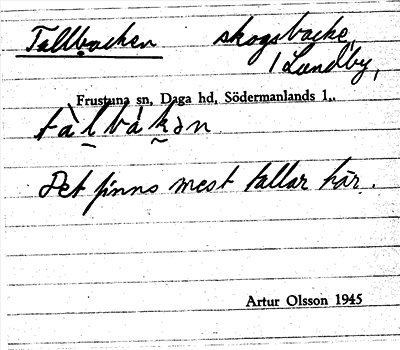 Tallbacken skogsbacke,
i Lundby,
Frustuna sn, Daga hd, Södermanlands l.,
tàl bàkən
Det finns mest tallar här.
Artur Olsson 1945